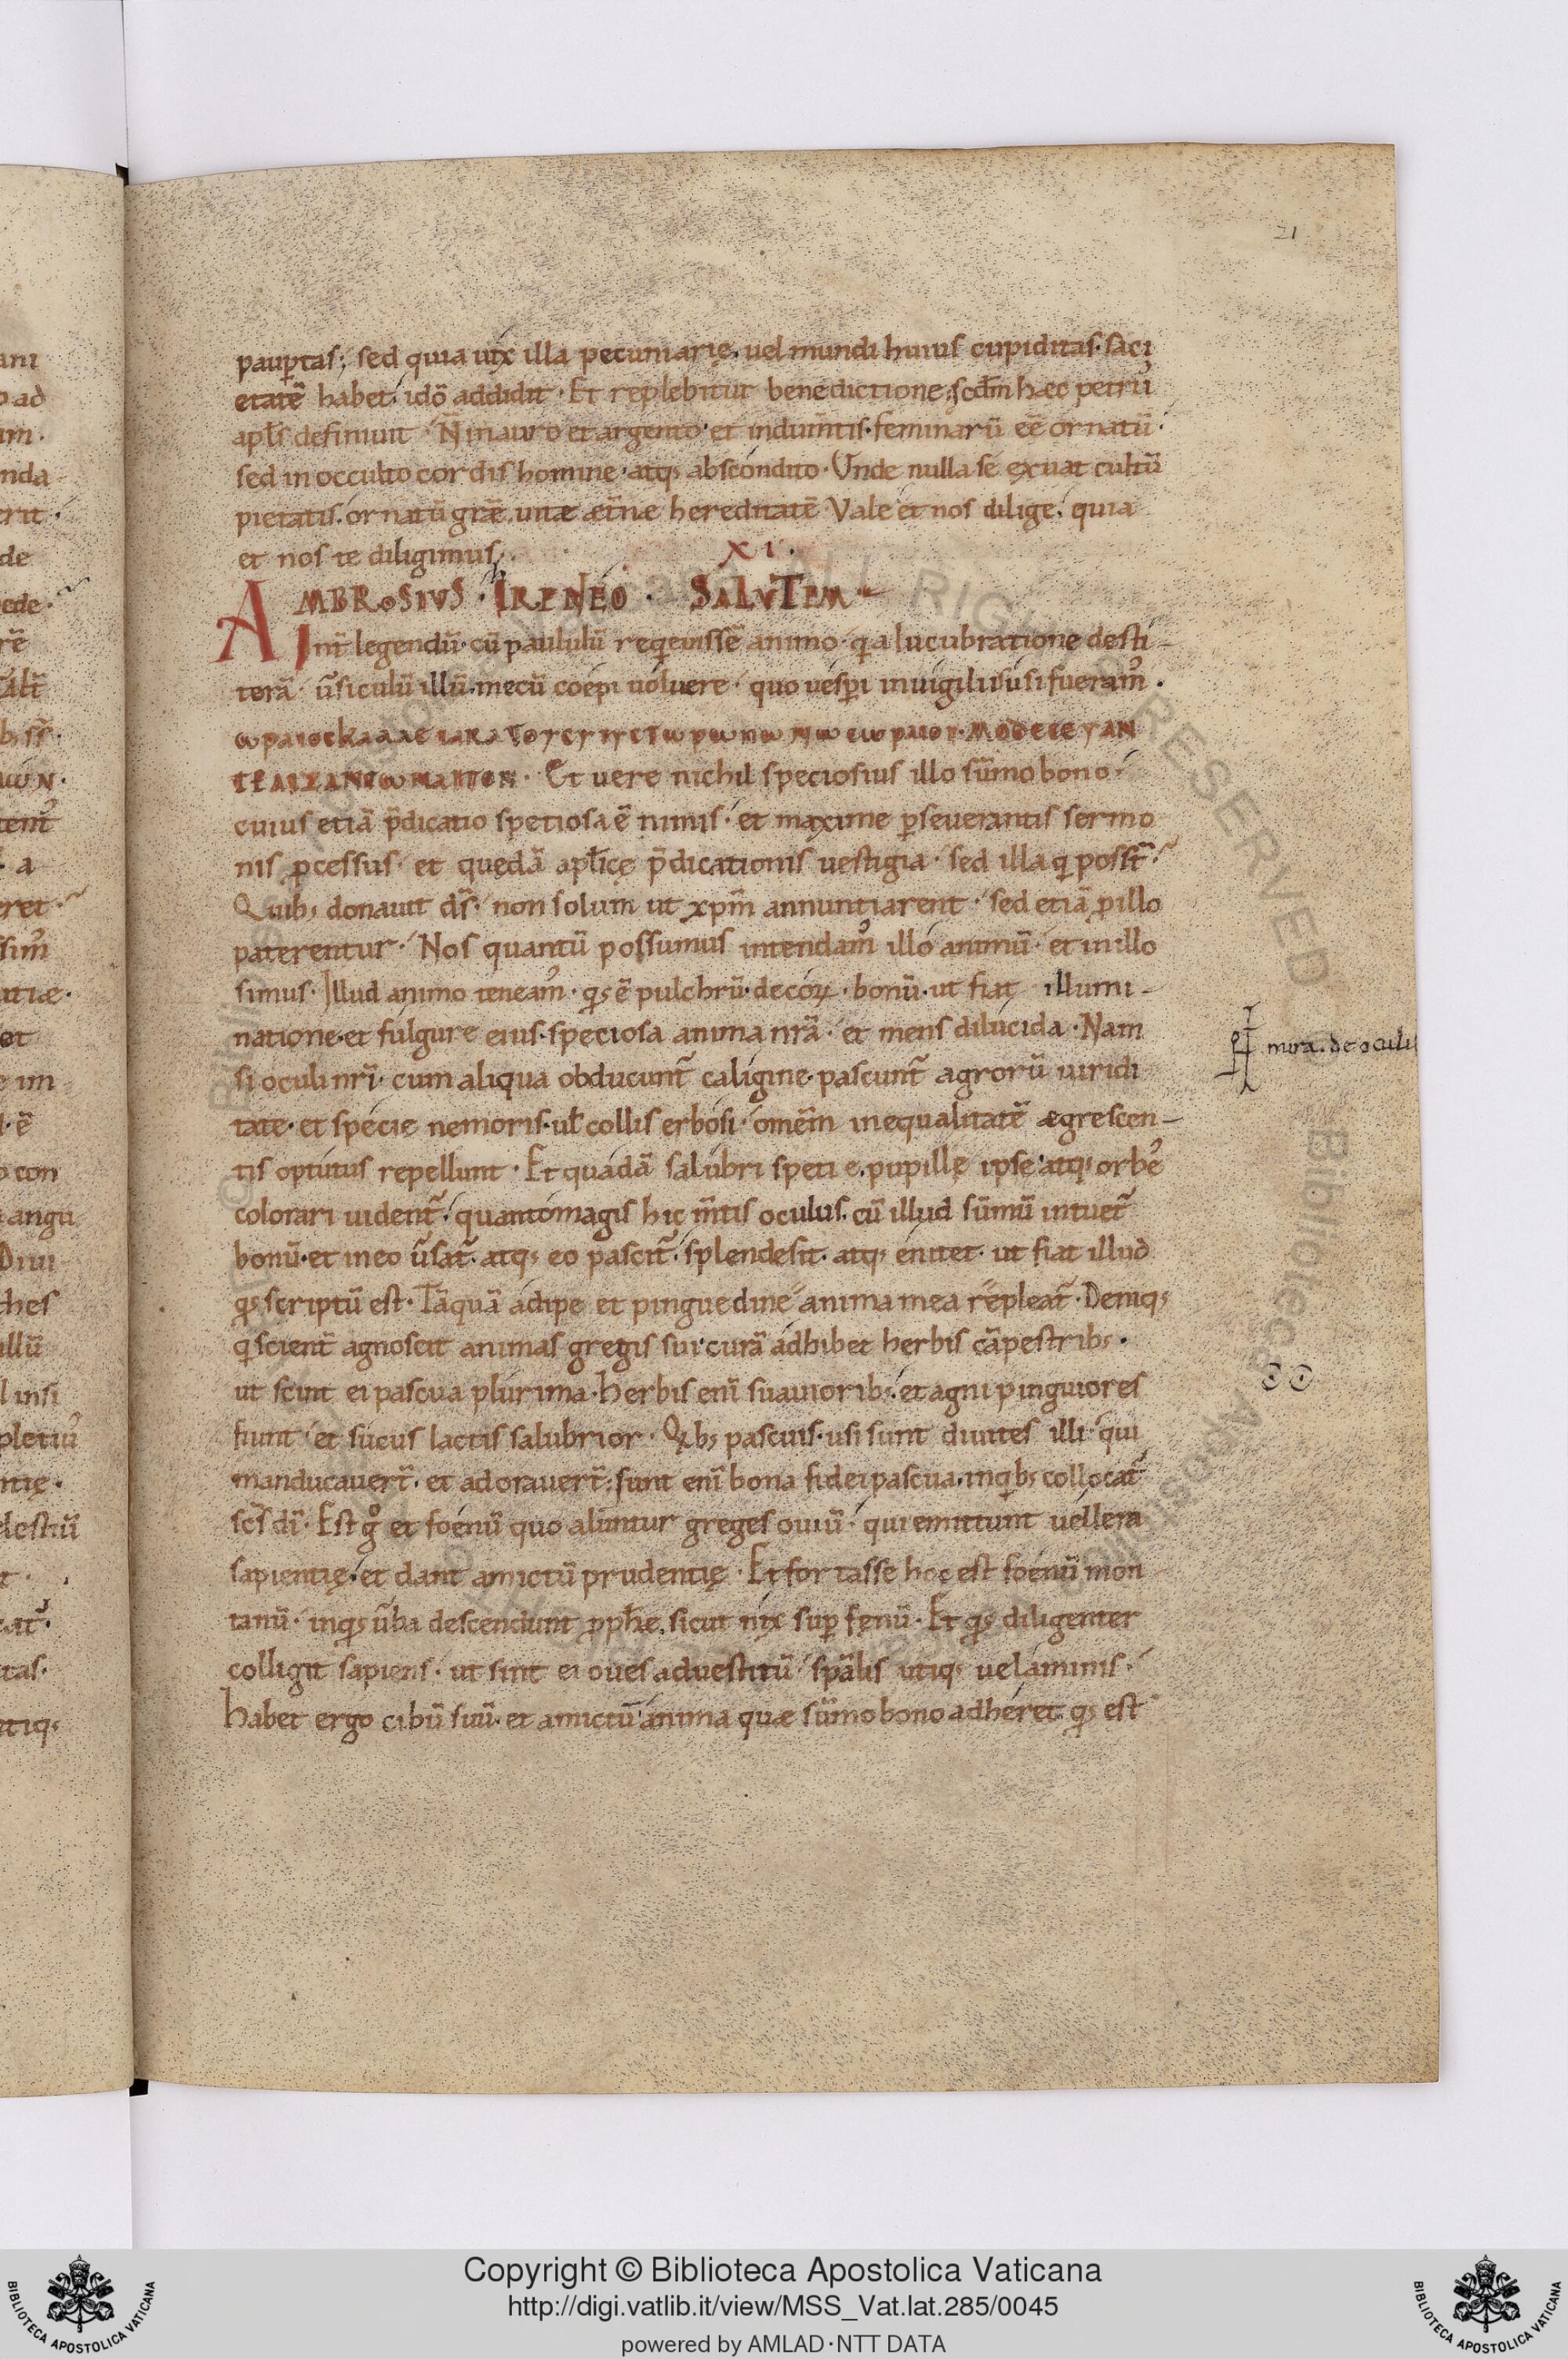 21
pauꝑtas; sed quia uix illa pecuniarię. uel mundi huius cupiditas. saci
etatē habet. idō addidit. Et replebitur benedictione. Scdm̄ hæc petrū
apl̄s definiuit. N̄ in auro et argento et indum̄tis. feminarū ee͞ ornatū.
sed in occulto cordis homine. atq; abscondito. Unde nulla se exuat cultū
pietatis. ornatū grāe. uitæ æt̄næ hereditatē. Vale et nos dilige. quia
et nos te diligimus.
XI.
AMBROSIVS. IRENEO. SALVTEM
Int̄ legendū. cū paululū reqeuissē animo. qa lucubratione desti-
terā. ūsiculū illū mecū coepi uoluere. quo uesꝑi in uigiliis usi fueram᷒.
Et uere nichil speciosius illo sūmo bono.
cuius etiā p̄dicatio spetiosa ē nimis. et maxime ꝑseuerantis sermo
nis ꝓcessus. et quedā apl̄icę p̄dicationis uestigia. sed illa q possr̄.
Quib; donauit ds̄. non solum ut xpm̄ annuntiarent. sed etiā ꝑ illo
paterentur. Nos quantū possumus intendam᷒ illo animū. et in illo
simus. Illud animo teneam᷒. q; ē pulchrū. decoꝝ. bonū. ut fiat illumi-
natione. et fulgure eius. speciosa anima nrā. et mens dilucida. Nam
si oculi nrī. cum aliqua obducunt̄ caligine. pascunt̄ agrorū uiridi
tate. et specie nemoris. ul̄ collis erbosi. omēm inequalitatē ægrescen-
tis optutus repellunt. Et quadā salubri speti e. pupillę ipse atq; orbe᷒
colorari uident̄. quantomagis hic m̄tis oculus. cū illud sūmū intuet̄
bonū. et in eo ūsat̄. atq; eo pascit̄. splendesit. atq; enitet. ut fiat illud
q; scriptū est. Tāquā adipe et pinguedine anima mea repleat̄. Deniq;
q scient̄ agnoscit animas gregis sui curā adhibet herbis cāpestrib;.
ut scint ei pascua plurima. herbis enī suauiorib;. et agni pinguiores
fiunt. et sucus lactis salubrior. Qb; pascuis. usi sunt diuites illi. qui
manducauert̄. et adorauert̄. sunt enī bona fidei pascua. in qb; collocat̄
scs̄ dī. Est g̊ et foenū quo aluntur greges ouiū. qui emittunt uellera
sapientię. et dant amictū prudentię. Et for tasse hoc est foenū mon
tanū. in q; ūba descendunt ꝓph̄æ. sicut nix suꝑ fęnū. Et q; diligenter
colligit sapiens. ut sint ei oues aduestitū. spālis utiq; uelaminis.
habet ergo cibū suū. et amictū anima quæ sūmo bono adheret. q; est
mira. de oculis
ani
o ad
um.
nda
erit.
de
ede.
a
eret.
et
im
con
angu
Diui
ches
llū
l insi
pletiu᷒
ntię.
lestiū
tas.
utiq;
BIBLIOTECA APOSTOLICA VATICANA
Copyright © Biblioteca Apostolica Vaticana
http://digi.vatlib.it/view/MSS_Vat.lat.285/0045
powered by AMLAD·NTT DATA
BIBLIOTECA APOSTOLICA VATICANA